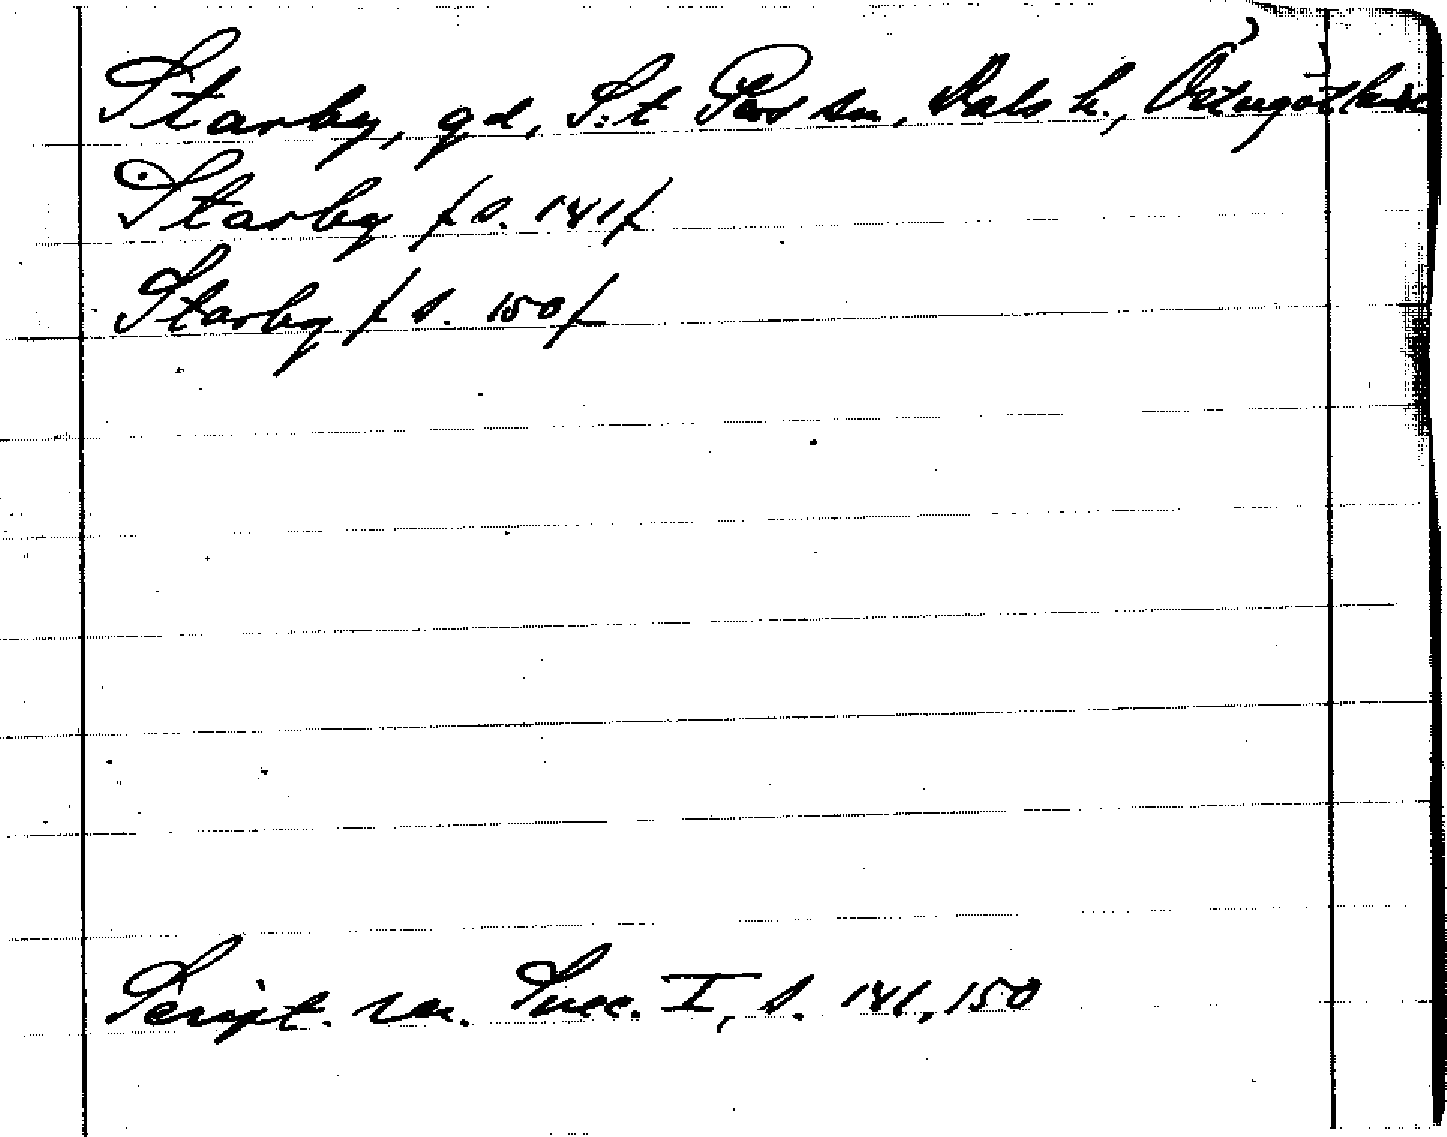 Starby, gd, S:t Pers sn, Dals h., Östergötland
Starby / s. 141/
Starby / s. 150/
Script. rer. Suec. I, s. 141, 150